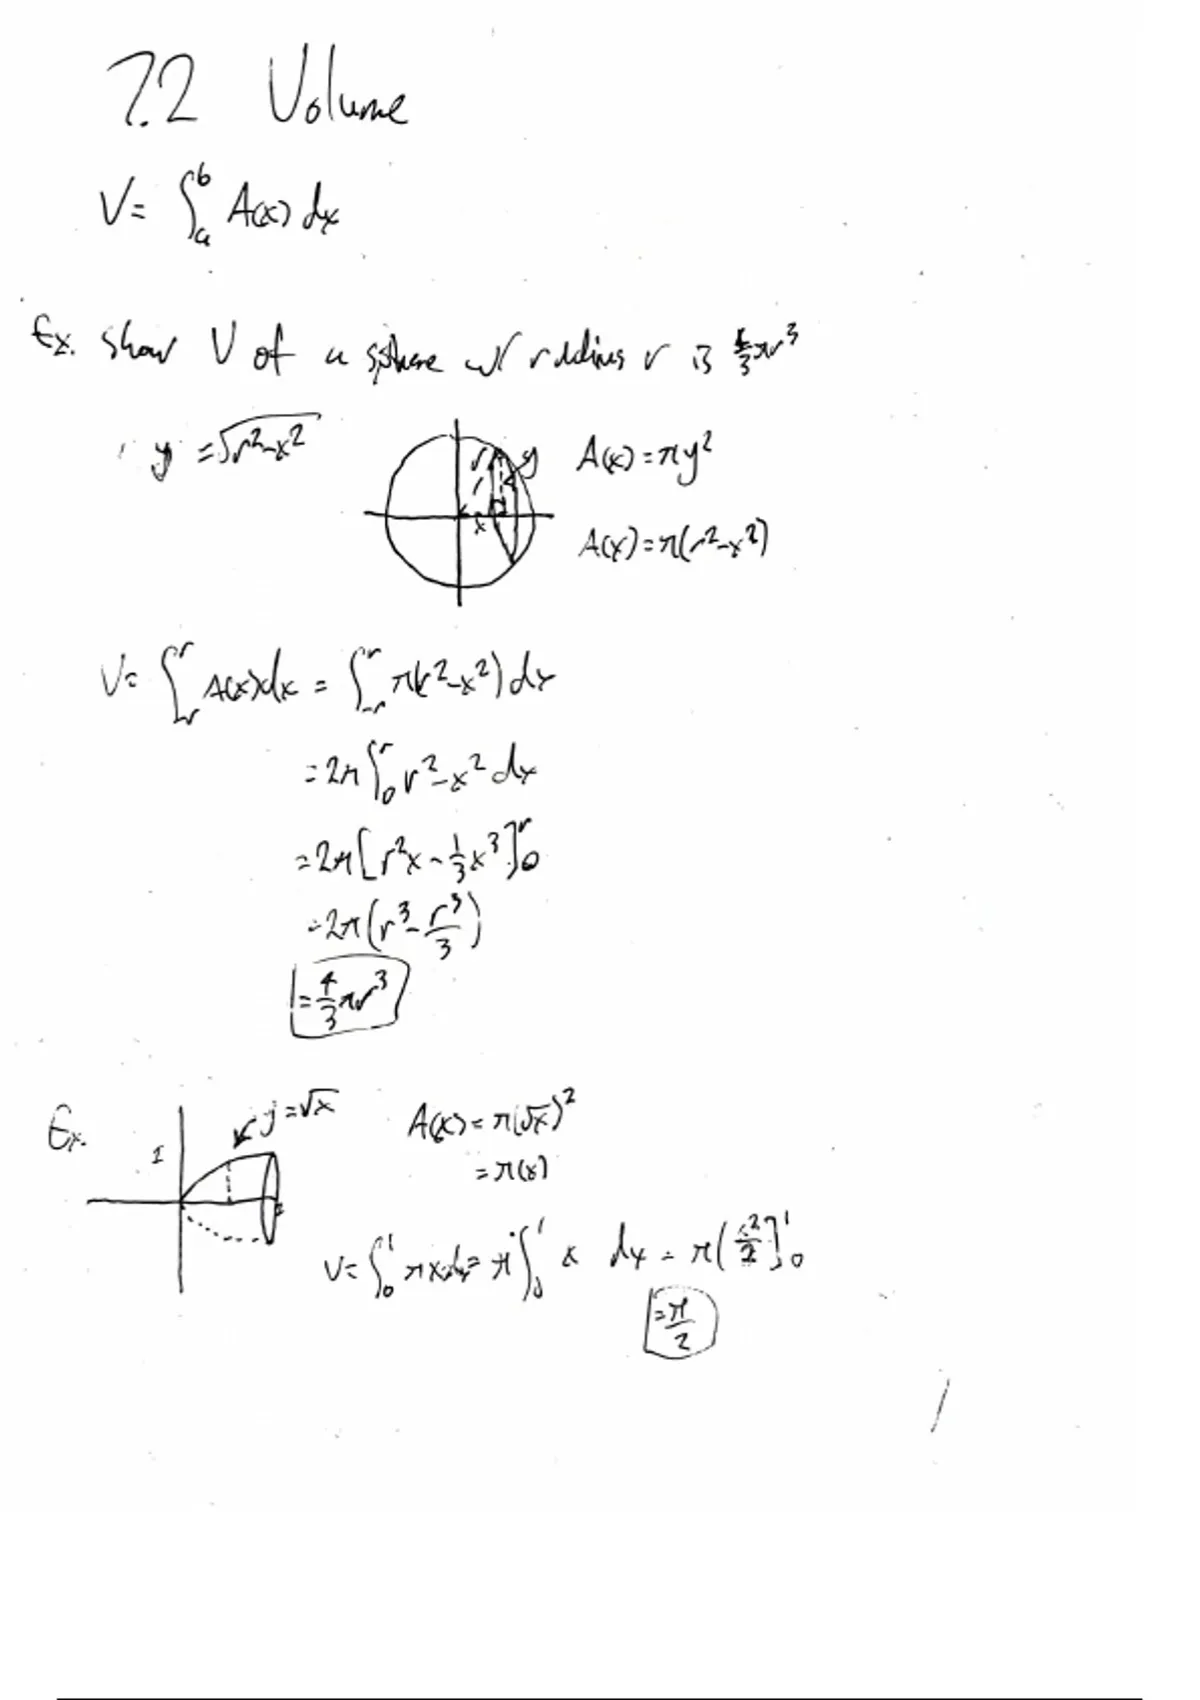 7.2 Volume
V= ∫_a^b A(x) dx
Ex. show V of a sphere w/ radius r is 4/3 πr³
y = √(r²-x²)
r y
x
A(x) = πy²
A(x) = π(r²-x²)
V= ∫_-r^r A(x)dx = ∫_-r^r π(r²-x²) dx
= 2π ∫_0^r r²-x² dx
= 2π [r²x - 1/3 x³]_0^r
= 2π (r³ - r³/3)
= 4/3 πr³
Ex.
y = √x
1
1
A(x) = π(√x)²
= π(x)
V= ∫_0^1 πx dx = π ∫_0^1 x dx = π(x²/2]_0^1
= π/2